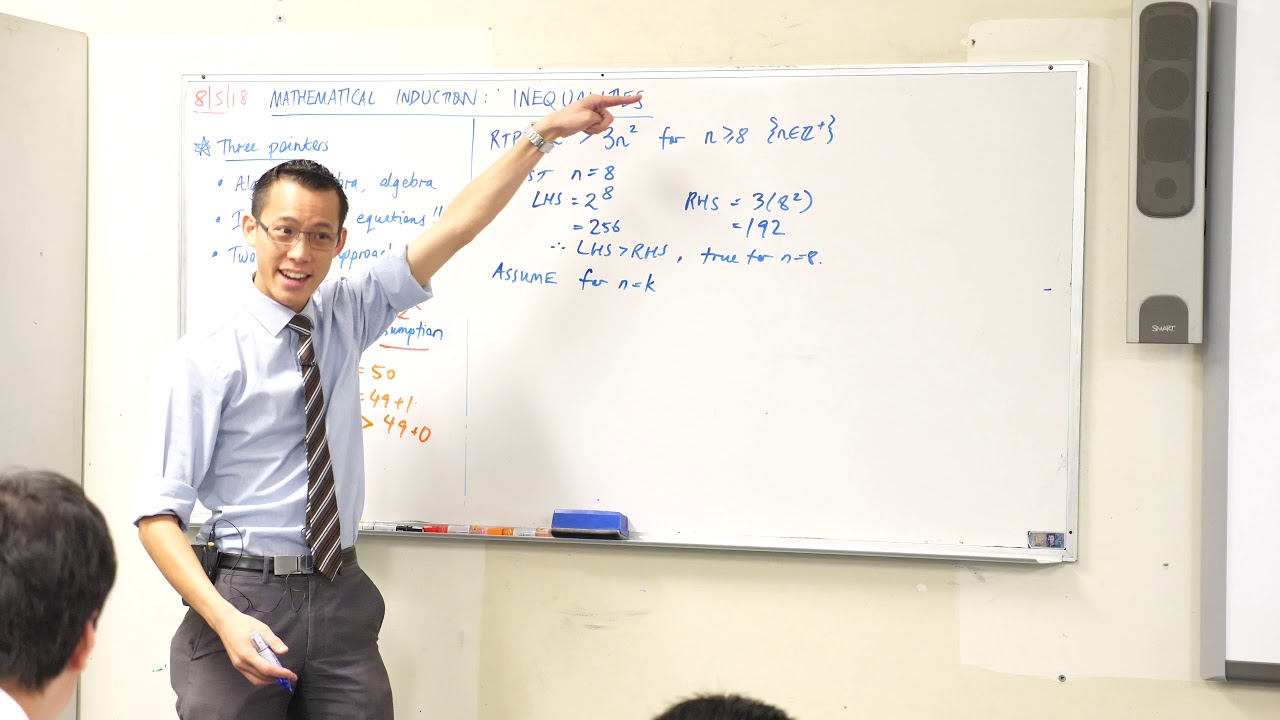 8/5/18 MATHEMATICAL INDUCTION: INEQUALITIES
Three pointers
• algebra
• equations!!
•
sumption
= 50
= 49+1
> 49+0
RTP > 3n² for n≥8 {n∈ℤ⁺}
n=8
LHS = 2⁸
= 256
RHS = 3(8²)
= 192
∴ LHS > RHS, true for n=8.
ASSUME for n=k
SMART